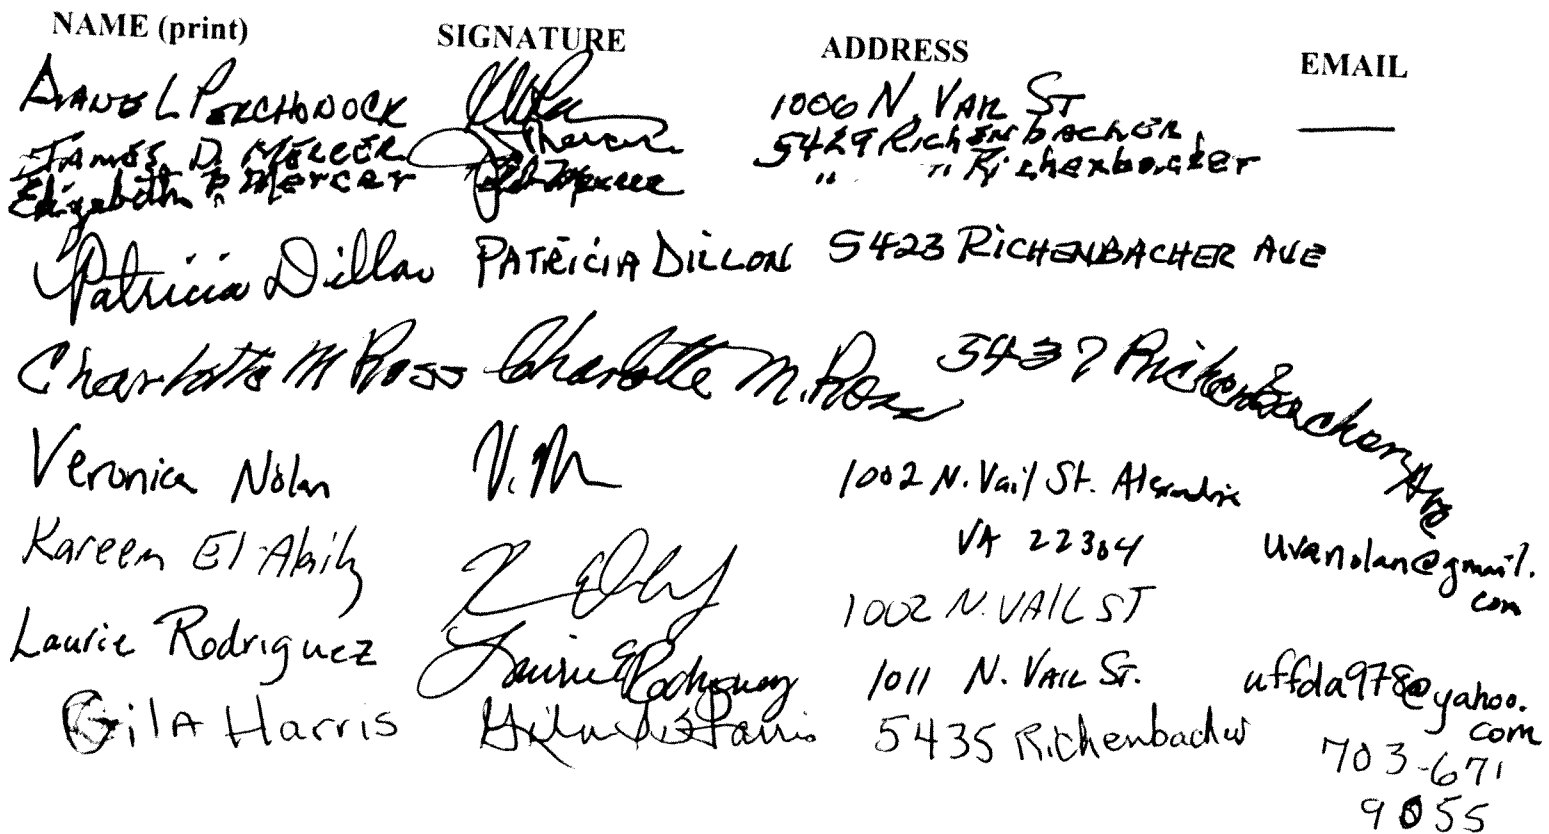 NAME (print) SIGNATURE ADDRESS EMAIL
L PERCHONOCK 1006 N. VAIL ST
JAMES D. MERCER 5429 Richenbacher
Elizabeth P. Mercer " " Richenbacher
Patricia Dillon PATRICIA DILLON 5423 RICHENBACHER AVE
Charlotte M Ross Charlotte M. Ross 5437 Richenbacher Ave
Veronica Nolan V. N 1002 N. Vail St. Alexandria
VA 22304 uvanolan@gmail.
com
Kareem El-Abily 1002 N. VAIL ST
Laurie Rodriguez Laurie E Rodriguez 1011 N. VAIL St. uffda978@yahoo.
com
GilA Harris Gila Harris 5435 Richenbacher 703-671
9055